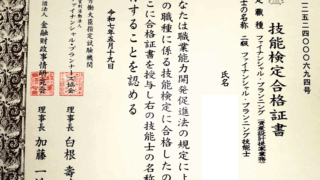 二五二四〇〇〇六九四号
技能検定合格証書
定職種 ファイナンシャル・プランニング（資産設計提案業務）
士の名称 二級 ファイナンシャル・プランニング技能士
氏名
なたは職業能力開発促進法の規定によ
の職種に係る技能検定に合格したの
こに合格証書を授与し右の技能士の名称
することを認める
令和七年五月十九日
労働大臣指定試験機関
ファイナンシャル・プランナ
理事長 白根 壽
法人 金融財政事情研究会
理事長 加藤 一